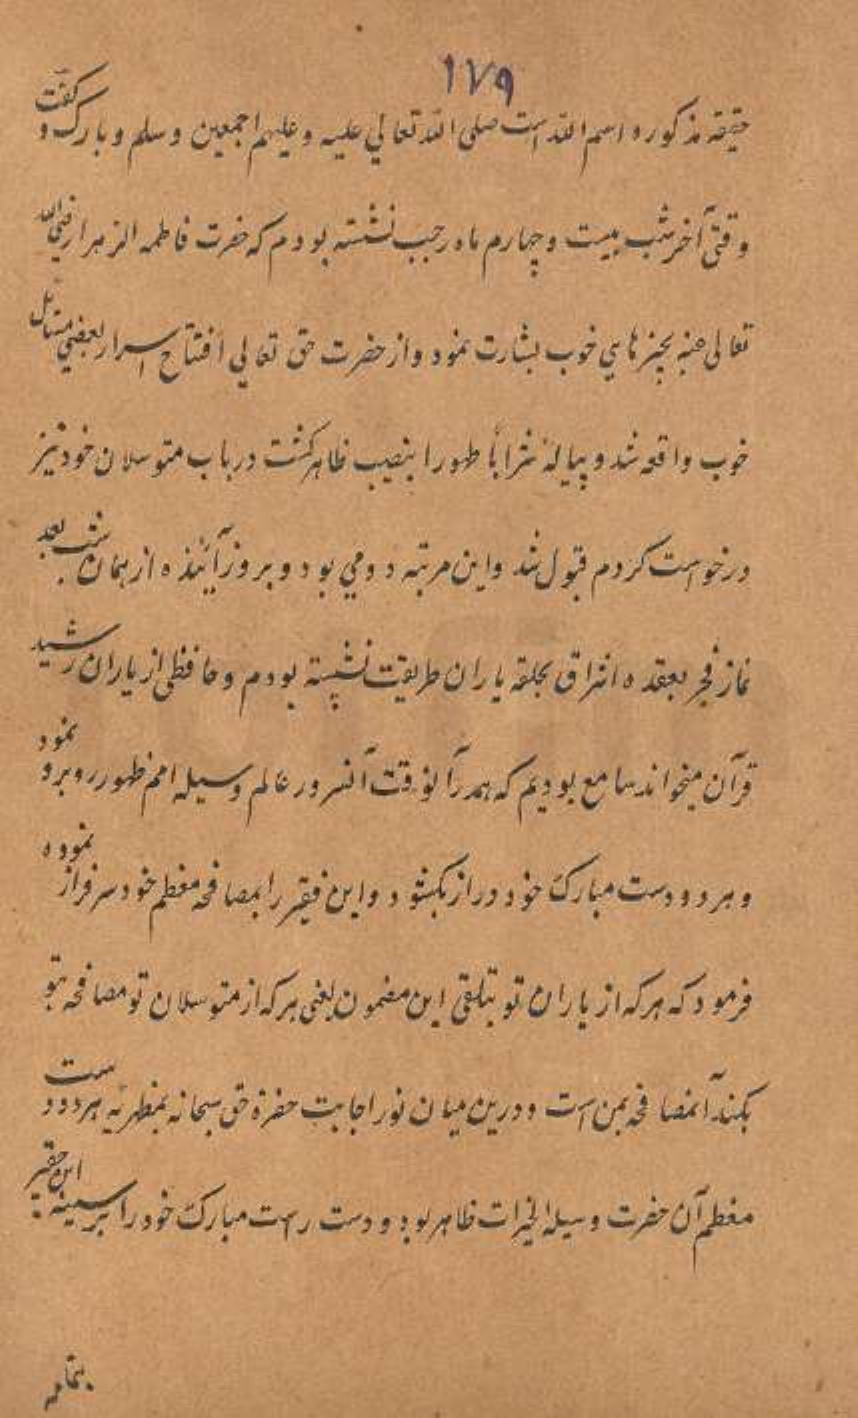 ۱۷۹
حقیقه مذکوره و اسم الله است صلی الله تعالی علیه و علیهم اجمعین و سلم و بارک و گفت
وقتی آخر شب بیست و چهارم ماه رجب نشسته بودم که حضرت فاطمه الزهرا رضی الله
تعالی عنه بچیزهای خوب بشارت نمود و از حضرت حق تعالی افتتاح اسرار بعضی مسائل
خوب واقعه شد و پیالهٔ شراباً طهورا بنصیب ظاهر گشت در باب متوسلان خود نیز
درخواست کردم قبول شد و این مرتبه دومی بود و بروز آئنده از همان شب بعد
نماز فجر بعقده اشراق بحلقه یاران طریقت نشسته بودم و حافظی از یاران رشید
قرآن میخواند سامع بودیم که همدر آنوقت آنسرور عالم وسیله امم ظهور روبرو نمود
و هر دو دست مبارک خود دراز بکشود و این فقیر را بمصافحه معظم خود سرفراز نموده
فرمود که هر که از یاران تو بتلقی این مضمون یعنی هر که از متوسلان تو مصافحه بتو
بکند آنمصافحه بمن است و درین میان نور اجابت حضرة حق سبحانه بمظهریه هر دو دست
معظم آن حضرت وسیله الخیرات ظاهر بود و دست راست مبارک خود را بر سینه این حقیر